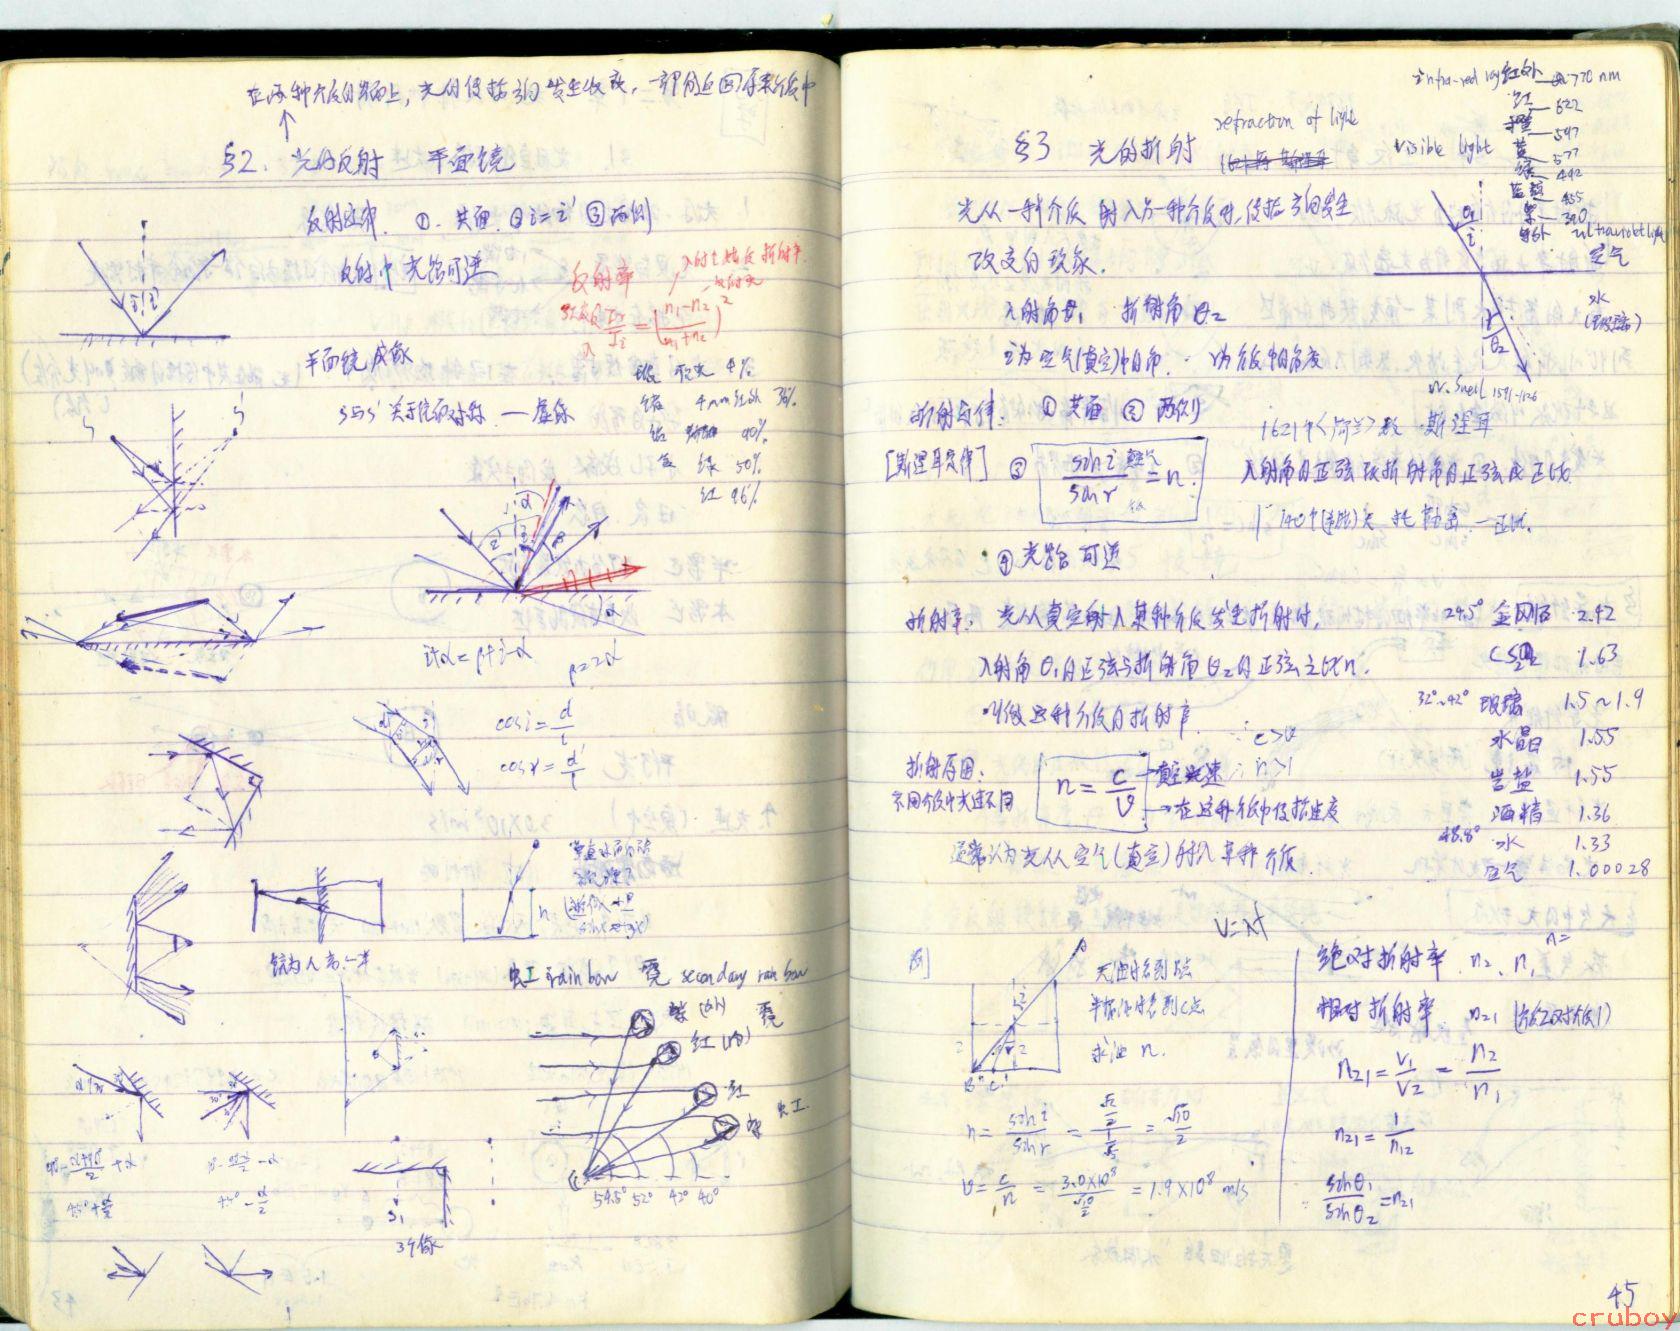 在两种介质的界面上，光的传播方向发生改变，一部分返回原来介质中
§2. 光的反射 平面镜
反射定律. ①. 共面. ② i = i' ③ 两侧
反射中光路可逆
反射率
入射光线反折射率
(n1-n2 / n1+n2)²
平面镜成像
S与S' 关于镜面对称 — 虚像
4%
4mm 红外
90%
金 绿 50%
红 96%
i+α = β+i-α
β=2α
cos i = d/l
cos r = d'/l
镜为人高一半
虹 rainbow 霓 secondary rainbow
紫 (外) 霓
红 (内)
红
紫 虹
54.5° 52° 42° 40°
+α
-α
45°+α/2
45°-α/2
S1
3个像
§3 光的折射 refraction of light
infra-red ray 红外 770 nm
红 622
橙 597
visible light 黄 577
绿 492
蓝靛 455
紫 390
紫外 ultraviolet light
光从一种介质射入另一种介质时，传播方向发生
改变的现象.
空气
水
(玻璃)
入射角θ1 折射角θ2
i为空气(真空)中角. r为介质中角度.
W. Snell 1591-1626
折射定律. ① 共面 ② 两侧
[斯涅耳定律] ③ sin i / sin r = n.
1621年<荷兰>数 斯涅耳
入射角的正弦跟折射角的正弦成正比.
④ 光路可逆
折射率: 光从真空射入某种介质发生折射时,
入射角θ1的正弦与折射角θ2的正弦之比n.
叫做这种介质的折射率.
24.5° 金刚石 2.42
CS2 1.63
32°~42° 玻璃 1.5~1.9
水晶 1.55
岩盐 1.55
酒精 1.36
48.8° 水 1.33
空气 1.00028
折射原因:
不同介质中光速不同
n = c/v
真空光速
在这种介质中传播速度
∵ c>v
∴ n>1
通常认为光从空气(真空)射入某种介质.
V=λf
例]
无油时看到B点
半桶油时看到C点
求油 n.
n = sin i / sin r = (√2/2)/(1/√5) = √10/2
v = c/n = 3.0×10⁸/(√10/2) = 1.9×10⁸ m/s
绝对折射率. n2、n1
n=
相对折射率. n21 (介质2对介质1)
n21 = v1/v2 = n2/n1
n21 = 1/n12
sinθ1/sinθ2 = n21
45
cruboy